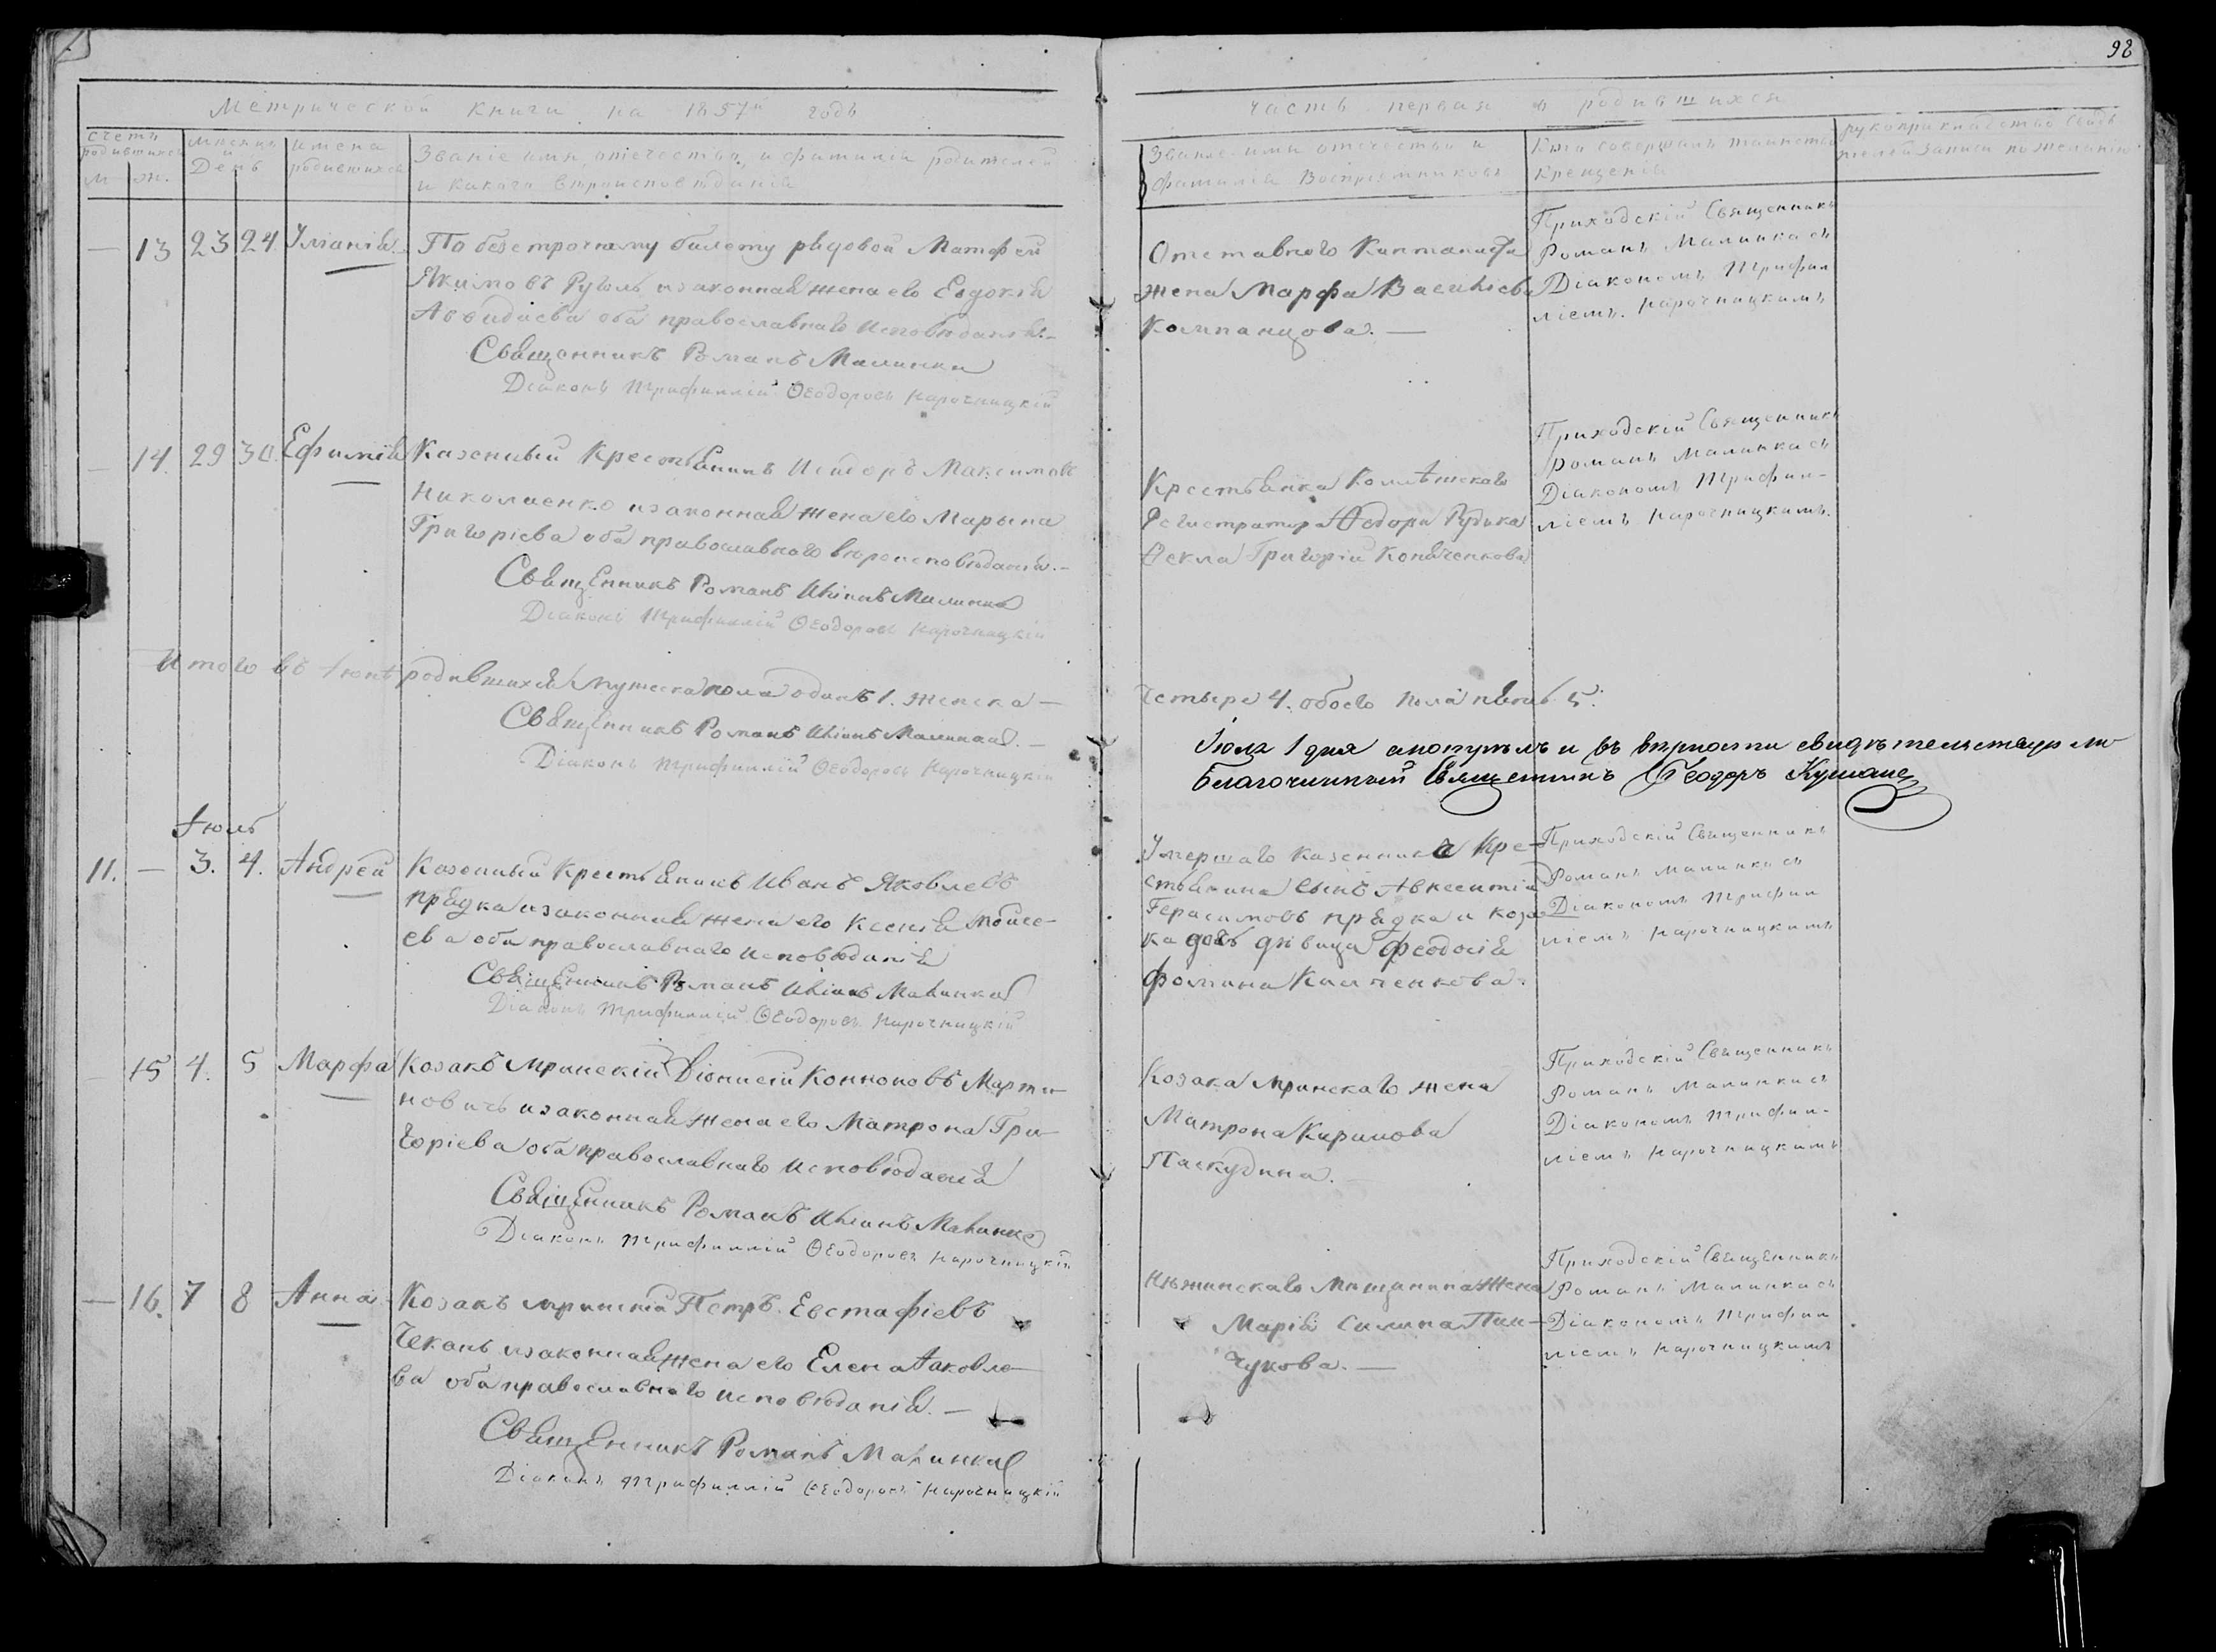 98
Метрической книги на 1857й годъ
Часть первая о родившихся
Счетъ родившихся
м. ж.
Мѣсяцъ и День
Имена родившихся
Званіе имя, отечество, и фамилія родителей
и какого вѣроисповѣданія
Званіе имя отечество и
фамилія Воспріемниковъ
Кто совершалъ таинство
Крещенія
рукоприкладство свидѣ
телей записи по желанію
— 13 23 24 Уліанія
По безсрочному билету рядовой Матфей
Якимовъ Рубль и законная жена его Евдокія
оба православнаго исповѣданія.
Священникъ Романъ Малинка
Діаконъ Трифиллій Ѳеодоровъ Нарочницкій
Отставного
жена Марфа Василіева
Компанцова. —
Приходскій Священникъ
Романъ Малинка съ
Діакономъ Трифил
ліемъ Нарочницкимъ
— 14. 29 30. Ефимія
Казенный Крестьянинъ Исидоръ Максимовъ
Николаенко и законная жена его Марьяна
Григоріева оба православного вѣроисповѣданія.—
Священникъ Романъ Иліинъ Малинка
Діаконъ Трифиллій Ѳеодоровъ Нарочницкій
Крестьянка Коллѣжского
Регистратора Ѳедора Рудька
Ѳекла Григорій
Приходскій Священникъ
Романъ Малинка съ
Діакономъ Трифил-
ліемъ Нарочницкимъ.
Итого въ Іюнѣ родившихся мужеска пола одинъ 1. женска —
четыре 4. обоего пола пять 5.
Священникъ Романъ Иліинъ Малинка. —
Діаконъ Трифиллій Ѳеодоровъ Нарочницкій
Іюля 1 дня и въ вѣрности свидѣтельствую
Благочинный Священникъ Ѳеодоръ
Іюль
11. — 3. 4. Андрей
Казенный Крестьянинъ Иванъ Яковлевъ
прядка и законная жена его Ксенія Моисе-
ева оба православнаго исповѣданія
Священникъ Романъ Иліинъ Малинка
Діаконъ Трифиллій Ѳеодоровъ Нарочницкій
Умершаго казенника Кре-
стьянина сынъ Авксентій
Герасимовъ прядка и коза-
ка дочь дѣвица Феодосія
Фомина
Приходскій Священникъ
Романъ Малинка съ
Діакономъ Трифил
ліемъ Нарочницкимъ
— 15 4. 5 Марфа
Козакъ Мринскій Діонисій Коноповъ Марти-
новичъ и законная жена его Матрона Гри-
горіева оба православнаго исповѣданія
Священникъ Романъ Иліинъ Малинка
Діаконъ Трифиллій Ѳеодоровъ Нарочницкій
Козака мринскаго жена
Матрона Кирилова
Паскудина.
Приходскій Священникъ
Романъ Малинка съ
Діакономъ Трифил-
ліемъ Нарочницкимъ
— 16. 7 8 Анна
Козакъ мринскій Петръ Евстафіевъ
Чеканъ и законная жена его Елена Іаковле-
ва оба православного исповѣданія. —
Священникъ Романъ Малинка
Діаконъ Трифиллій Ѳеодоровъ Нарочницкій
Нѣжинскаго Мѣщанина жена
Марія Силина Пин-
чукова. —
Приходскій Священникъ
Романъ Малинка съ
Діакономъ Трифил
ліемъ Нарочницкимъ